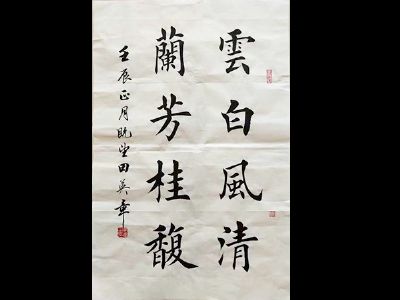 雲白風清
蘭芳桂馥
壬辰正月既望田英章